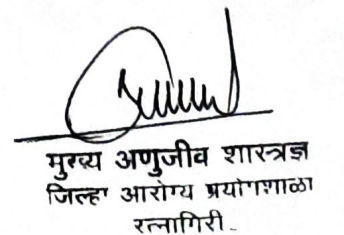 मुख्य अणुजीव शास्त्रज्ञ
जिल्हा आरोग्य प्रयोगशाळा
रत्नागिरी.